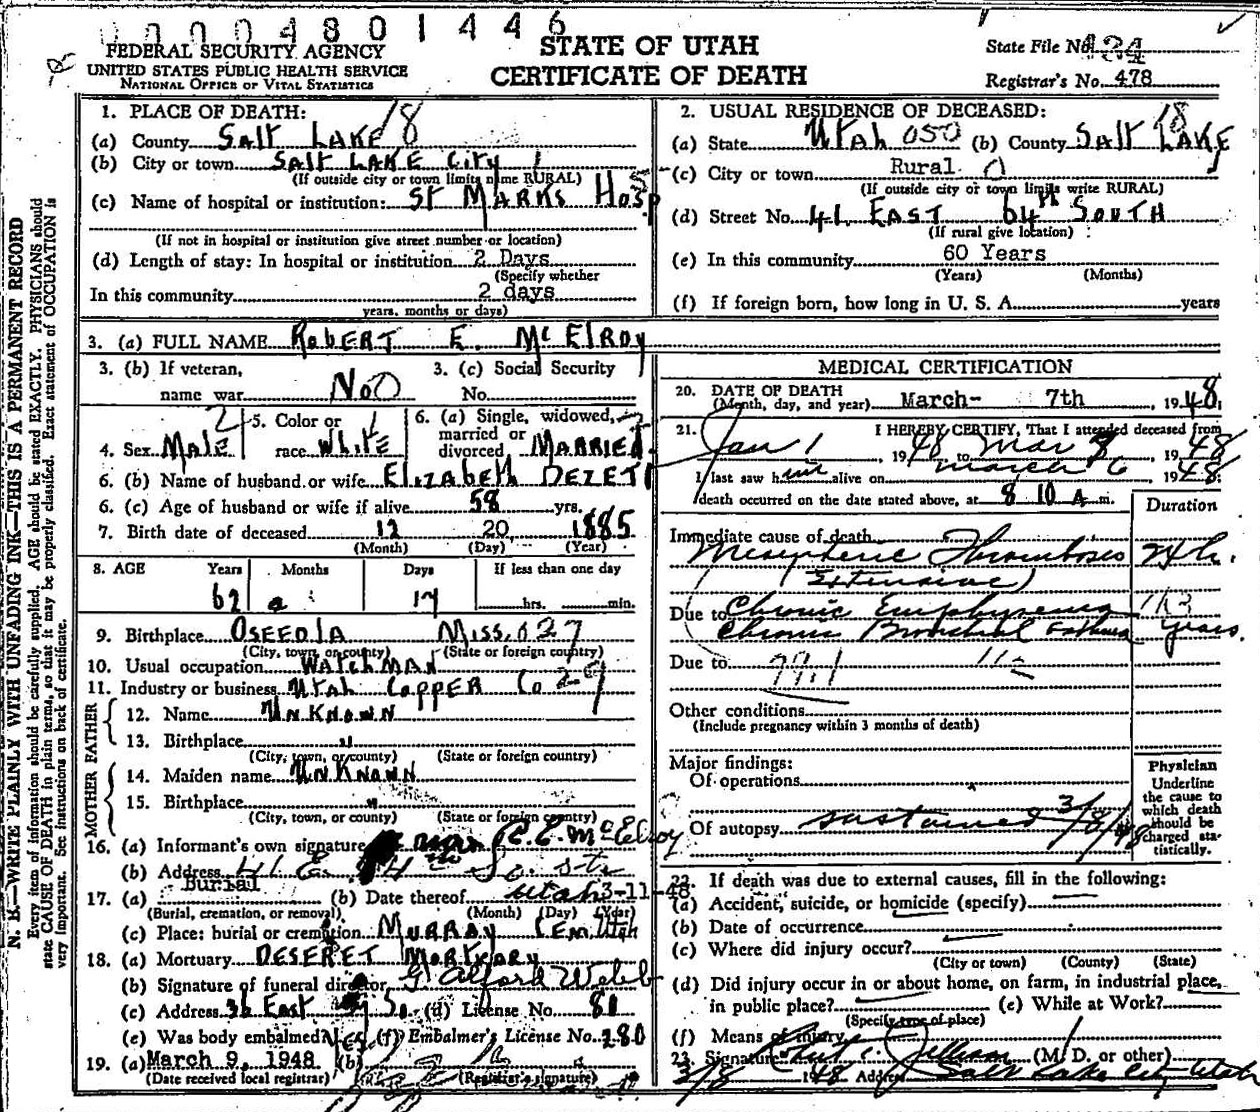 00004801446
FEDERAL SECURITY AGENCY
UNITED STATES PUBLIC HEALTH SERVICE
NATIONAL OFFICE OF VITAL STATISTICS
STATE OF UTAH
CERTIFICATE OF DEATH
State File No.
Registrar's No. 478
N. B.—WRITE PLAINLY WITH UNFADING INK—THIS IS A PERMANENT RECORD
Every item of information should be carefully supplied. AGE should be stated EXACTLY. PHYSICIANS should
state CAUSE OF DEATH in plain terms, so that it may be properly classified. Exact statement of OCCUPATION is
very important. See instructions on back of certificate.
1. PLACE OF DEATH: 18
(a) County SALT LAKE
(b) City or town SALT LAKE CITY 1
(If outside city or town limits name RURAL)
(c) Name of hospital or institution: ST MARKS HOSP
(If not in hospital or institution give street number or location)
(d) Length of stay: In hospital or institution 2 Days
(Specify whether
In this community 2 days
years, months or days)
2. USUAL RESIDENCE OF DECEASED: 18
(a) State Utah 050 (b) County SALT LAKE
(c) City or town Rural 0
(If outside city or town limits write RURAL)
(d) Street No. 41 EAST 64th SOUTH
(If rural give location)
(e) In this community 60 Years
(Years) (Months)
(f) If foreign born, how long in U. S. A. years
3. (a) FULL NAME ROBERT E. McElroy
3. (b) If veteran,
name war No 0
3. (c) Social Security
No.
4. Sex MALE 2
5. Color or
race White 1
6. (a) Single, widowed,
married or
divorced MARRIED 2
6. (b) Name of husband or wife ELIZABETH
6. (c) Age of husband or wife if alive 58 yrs.
7. Birth date of deceased 12 20 1885
(Month) (Day) (Year)
8. AGE Years Months Days If less than one day
62 2 17 hrs. min.
9. Birthplace OSEEOLA Miss. 027
(City, town, or county) (State or foreign country)
10. Usual occupation WATCHMAN
11. Industry or business Utah COPPER Co
FATHER
12. Name UNKNOWN
13. Birthplace "
(City, town, or county) (State or foreign country)
MOTHER
14. Maiden name UNKNOWN
15. Birthplace "
(City, town, or county) (State or foreign country)
16. (a) Informant's own signature McElroy
(b) Address 41 E. So. St.
17. (a) Burial (b) Date thereof Utah 3-11-48
(Burial, cremation, or removal) (Month) (Day) (Year)
(c) Place: burial or cremation MURRAY CEM. Utah
18. (a) Mortuary DESERET MORTUARY
(b) Signature of funeral director G Alford Webb
(c) Address 36 East So. (d) License No. 81
(e) Was body embalmed? Yes (f) Embalmer's License No. 280
19. (a) March 9, 1948 (b)
(Date received local registrar) (Registrar's signature)
MEDICAL CERTIFICATION
20. DATE OF DEATH
(Month, day, and year) March- 7th, 1948
21. I HEREBY CERTIFY, That I attended deceased from
Jan 1 1948, to Mar 8 1948
I last saw him alive on March 6 1948;
death occurred on the date stated above, at 8 10 A m.
Duration
Immediate cause of death
Mesenteric Thrombosis 24 h.
(Extensive)
Due to Chronic Emphysema
Chronic Bronchial Asthma years.
Due to
Other conditions
(Include pregnancy within 3 months of death)
Major findings:
Of operations
Of autopsy sustained 3/8/48
Physician
Underline
the cause to
which death
should be
charged sta-
tistically.
22. If death was due to external causes, fill in the following:
(a) Accident, suicide, or homicide (specify)
(b) Date of occurrence
(c) Where did injury occur?
(City or town) (County) (State)
(d) Did injury occur in or about home, on farm, in industrial place,
in public place? (e) While at Work?
(Specify type of place)
(f) Means of injury
23. Signature (M. D. or other)
3/8 1948 Address Salt Lake City Utah